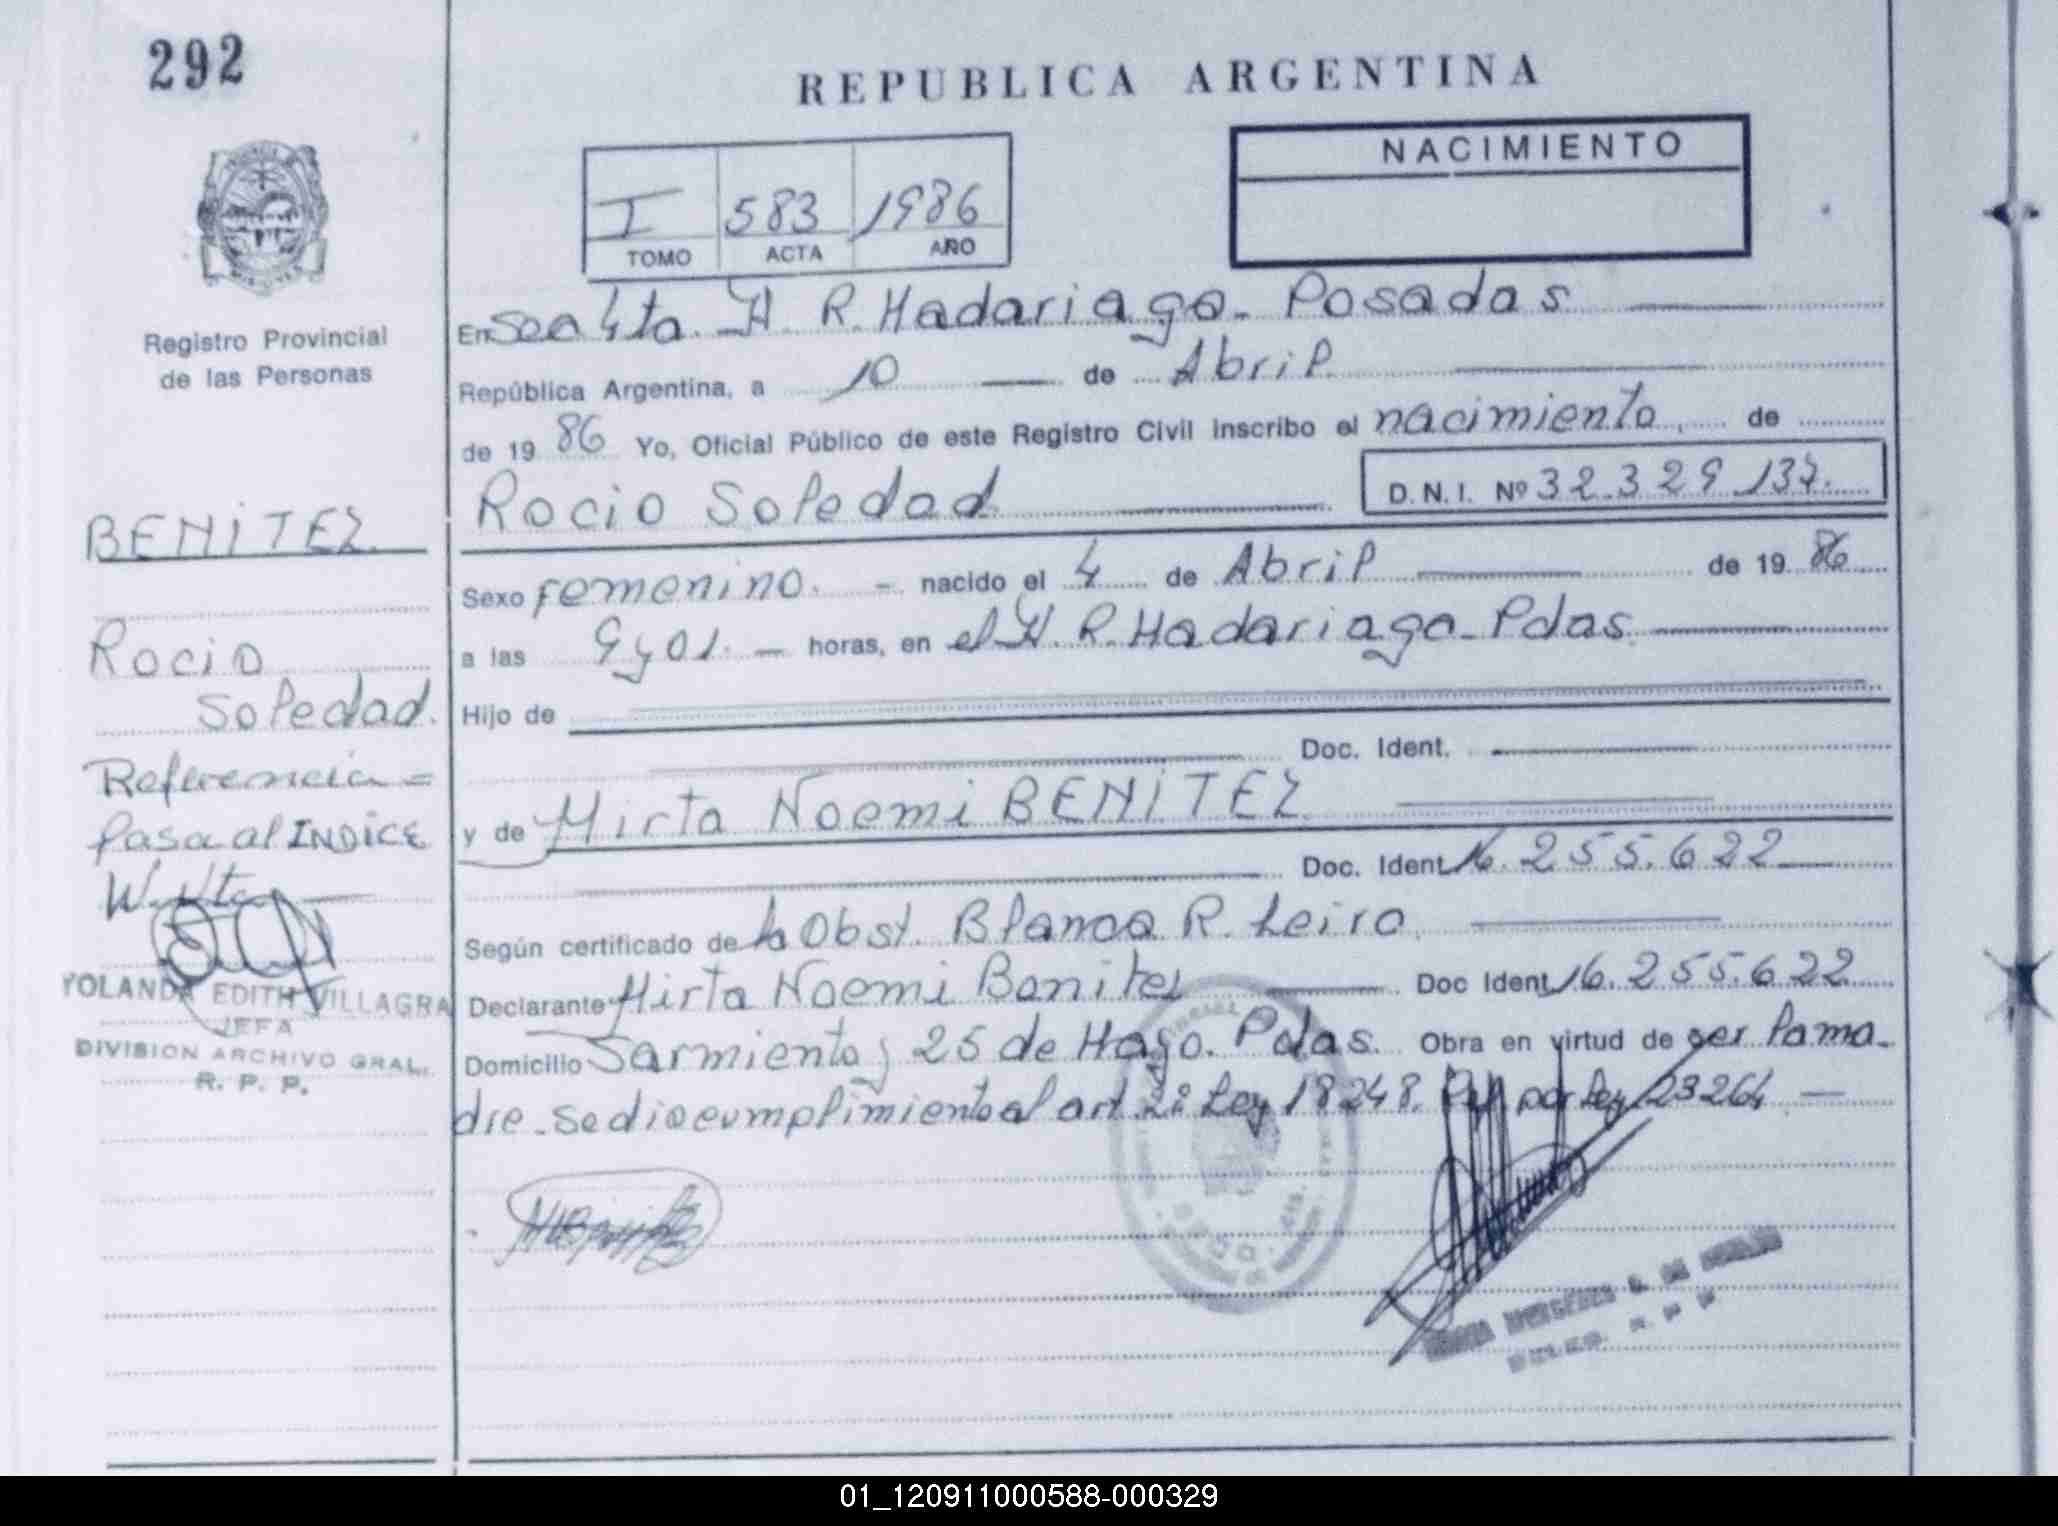 292
REPUBLICA ARGENTINA
NACIMIENTO
I 583 1986
TOMO ACTA AÑO
Registro Provincial
de las Personas
BENITEZ.
Rocio
Soledad.
Referencia =
Pasa al INDICE
YOLANDA EDITH VILLAGRA
JEFA
DIVISION ARCHIVO GRAL.
R. P. P.
En Sec 4ta. H. R. Madariaga - Posadas
República Argentina, a 10 de Abril
de 19 86 Yo, Oficial Público de este Registro Civil inscribo el nacimiento, de
Rocio Soledad D.N.I. Nº 32.329.137.
Sexo femenino. - nacido el 4 de Abril de 19 86
a las 9 y 01. - horas, en el H. R. Madariaga - Pdas.
Hijo de
Doc. Ident.
y de Mirta Noemi BENITEZ
Doc. Ident. 16.255.622
Según certificado de la Obst. Blanca R. Leiro.
Declarante Mirta Noemi Benitez Doc Ident. 16.255.622
Domicilio Sarmiento y 25 de Mayo. Pdas. Obra en virtud de ser la ma-
dre - se dio cumplimiento al art. 2º Ley 18248. por Ley 23264 -
DELEG. R. P. P.
01_120911000588-000329